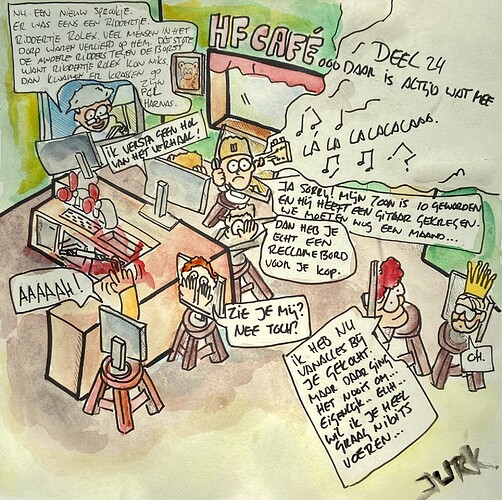 NU EEN NIEUW SPROOKJE.
ER WAS EENS EEN RIDDERTJE.
RIDDERTJE ROLEX. VEEL MENSEN IN HET
DORP WAREN VERLIEFD OP HEM. DAT STOTE
DE ANDERE RIDDERS TEGEN DE BORST
WANT RIDDERTJE ROLEX KON NIKS.
DAN KWAMEN ER KRASSEN OP
ZIJN
HARNAS.
HF CAFÉ
DEEL 24
OOO DAAR IS ALTIJD WAT MEE
IK VERSTA GEEN HOL
VAN HET VERHAAL!
LA LA LA
LA LA LALALALAAA.
JA SORRY! MIJN ZOON IS 10 GEWORDEN
EN HIJ HEEFT EEN GITAAR GEKREGEN.
WE MOETEN NOG EEN MAAND...
DAN HEB JE
ECHT EEN
RECLAMEBORD
VOOR JE KOP.
AAAAAH!
ZIE JE MIJ?
NEE TOCH?
IK HEB NU
VANALLES BIJ
JE GEKOCHT.
MAAR DAAR GING
HET NOOIT OM...
EIGENLIJK.. ECHT..
WIL IK JE HEEL
GRAAG NIBITS
VOEREN...
OH.
JURK